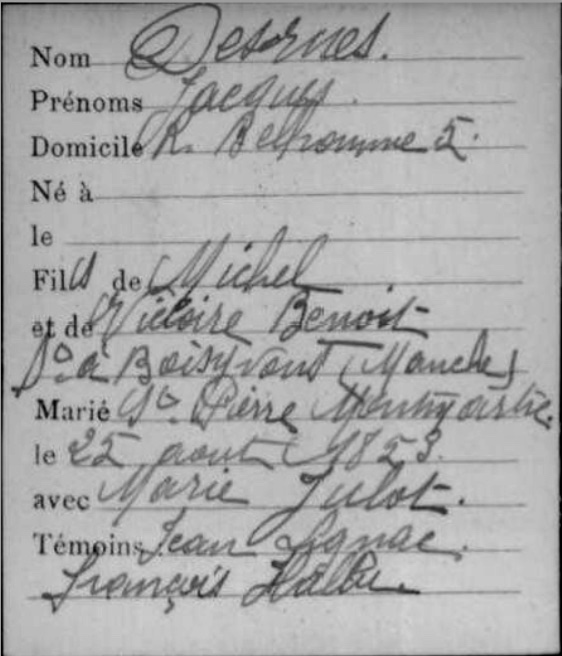 Nom Desrues.
Prénoms Jacques.
Domicile R. Belhomme 5.
Né à
le
Fils de Michel
et de Victoire Benoit
Do. à Boisyvont (Manche)
Marié St. Pierre Montmartre.
le 25 aout 1853.
avec Marie Julot.
Témoins Jean Signac.
François